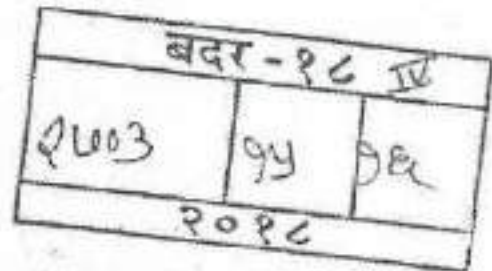 बदर - १८ IV
२७०३ १५ १६
२०१८